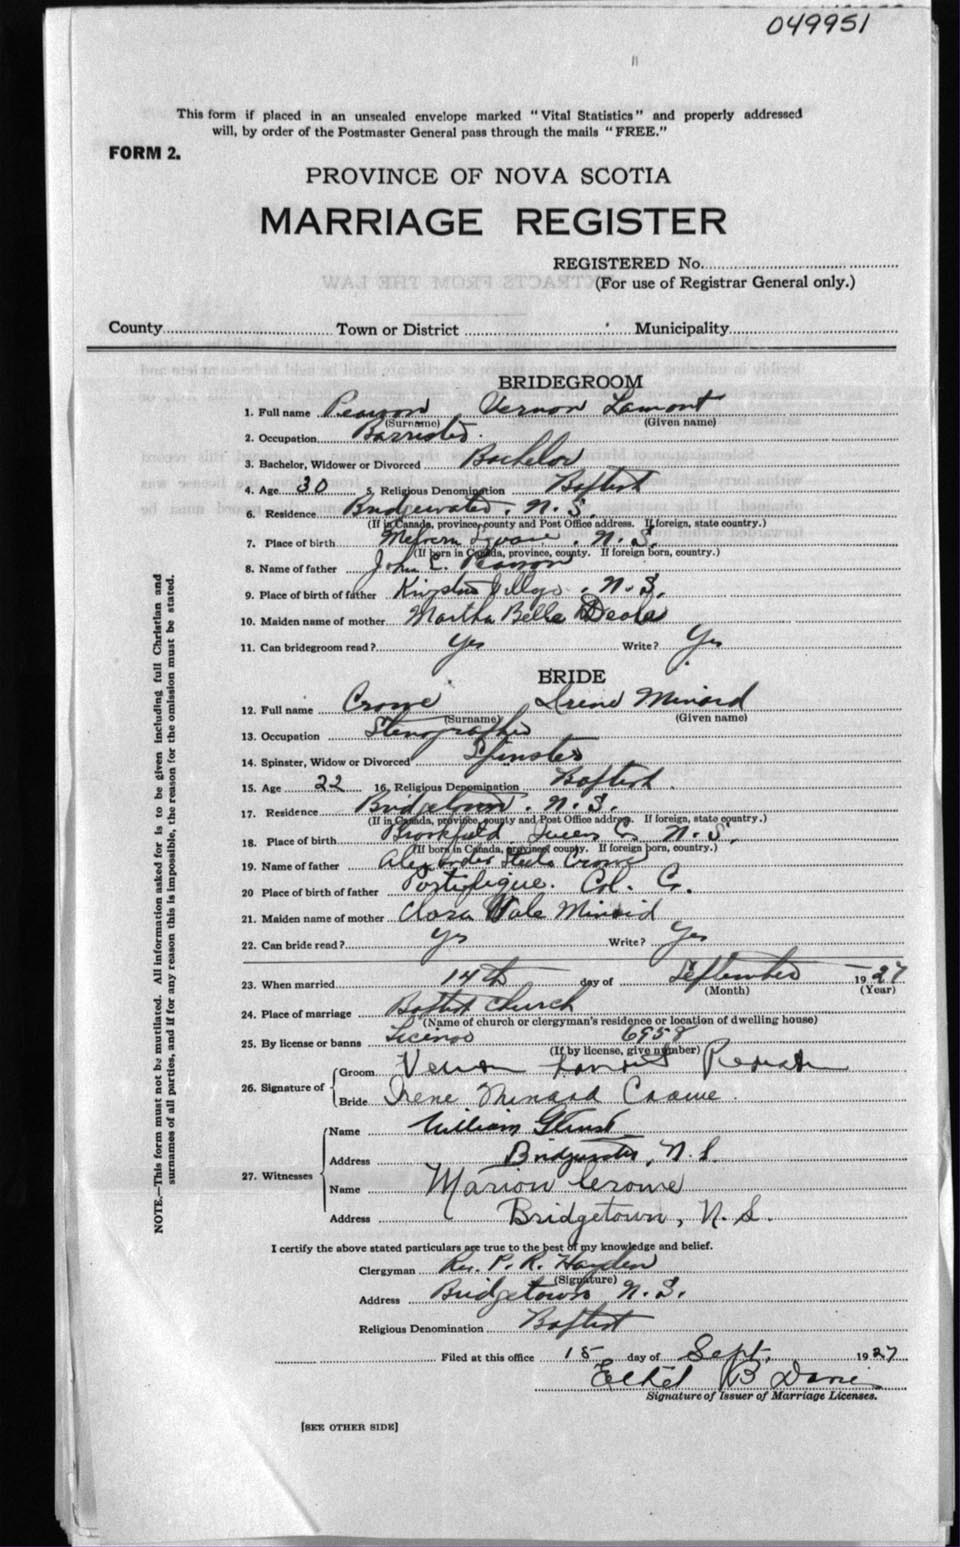 049951
This form if placed in an unsealed envelope marked "Vital Statistics" and properly addressed
will, by order of the Postmaster General pass through the mails "FREE."
FORM 2.
PROVINCE OF NOVA SCOTIA
MARRIAGE REGISTER
REGISTERED No.
(For use of Registrar General only.)
County Town or District Municipality
BRIDEGROOM
1. Full name Pearson Vernon Lamont
(Surname) (Given name)
2. Occupation Barrister.
3. Bachelor, Widower or Divorced Bachelor
4. Age 30 5. Religious Denomination Baptist
6. Residence Bridgewater, N. S.
(If in Canada, province, county and Post Office address. If foreign, state country.)
7. Place of birth Melvern Square. N. S.
(If born in Canada, province, county. If foreign born, country.)
8. Name of father John E. Pearson
9. Place of birth of father Kingston Village, N. S.
10. Maiden name of mother Martha Belle
11. Can bridegroom read? Yes Write? Yes
BRIDE
12. Full name Crowe Irene Minard
(Surname) (Given name)
13. Occupation Stenographer
14. Spinster, Widow or Divorced Spinster
15. Age 22 16. Religious Denomination Baptist.
17. Residence Bridgetown, N. S.
(If in Canada, province, county and Post Office address. If foreign, state country.)
18. Place of birth Brookfield Queens Co N. S.
(If born in Canada, province, county. If foreign born, country.)
19. Name of father Alexander Steele Crowe
20 Place of birth of father Portipique. Col. Co.
21. Maiden name of mother Clara Minard
22. Can bride read? Yes Write? Yes
23. When married 14th day of September 1927
(Month) (Year)
24. Place of marriage Baptist Church
(Name of church or clergyman's residence or location of dwelling house)
25. By license or banns License 6958
(If by license, give number)
26. Signature of Groom Vernon Lamont Pearson
Bride Irene Minard Crowe.
27. Witnesses Name William
Address Bridgewater, N. S.
Name Marion Crowe
Address Bridgetown, N. S.
I certify the above stated particulars are true to the best of my knowledge and belief.
Clergyman Rev. P. R. Hayden
(Signature)
Address Bridgetown N. S.
Religious Denomination Baptist
Filed at this office 15 day of Sept. 1927
Ethel B
Signature of Issuer of Marriage Licenses.
[SEE OTHER SIDE]
NOTE.—This form must not be mutilated. All information asked for is to be given including full Christian and
surnames of all parties, and if for any reason this is impossible, the reason for the omission must be stated.